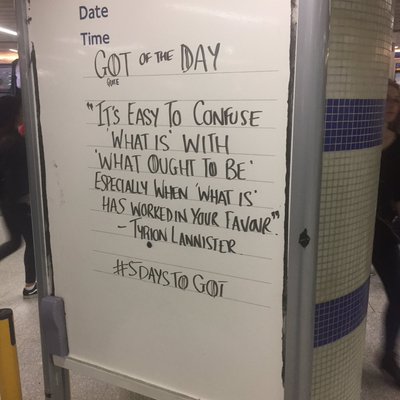 Date
Time
GOT OF THE DAY
QUOTE
"IT'S EASY TO CONFUSE
'WHAT IS' WITH
'WHAT OUGHT TO BE'
ESPECIALLY WHEN 'WHAT IS'
HAS WORKED IN YOUR FAVOUR"
- TYRION LANNISTER
#5DAYSTOGOT